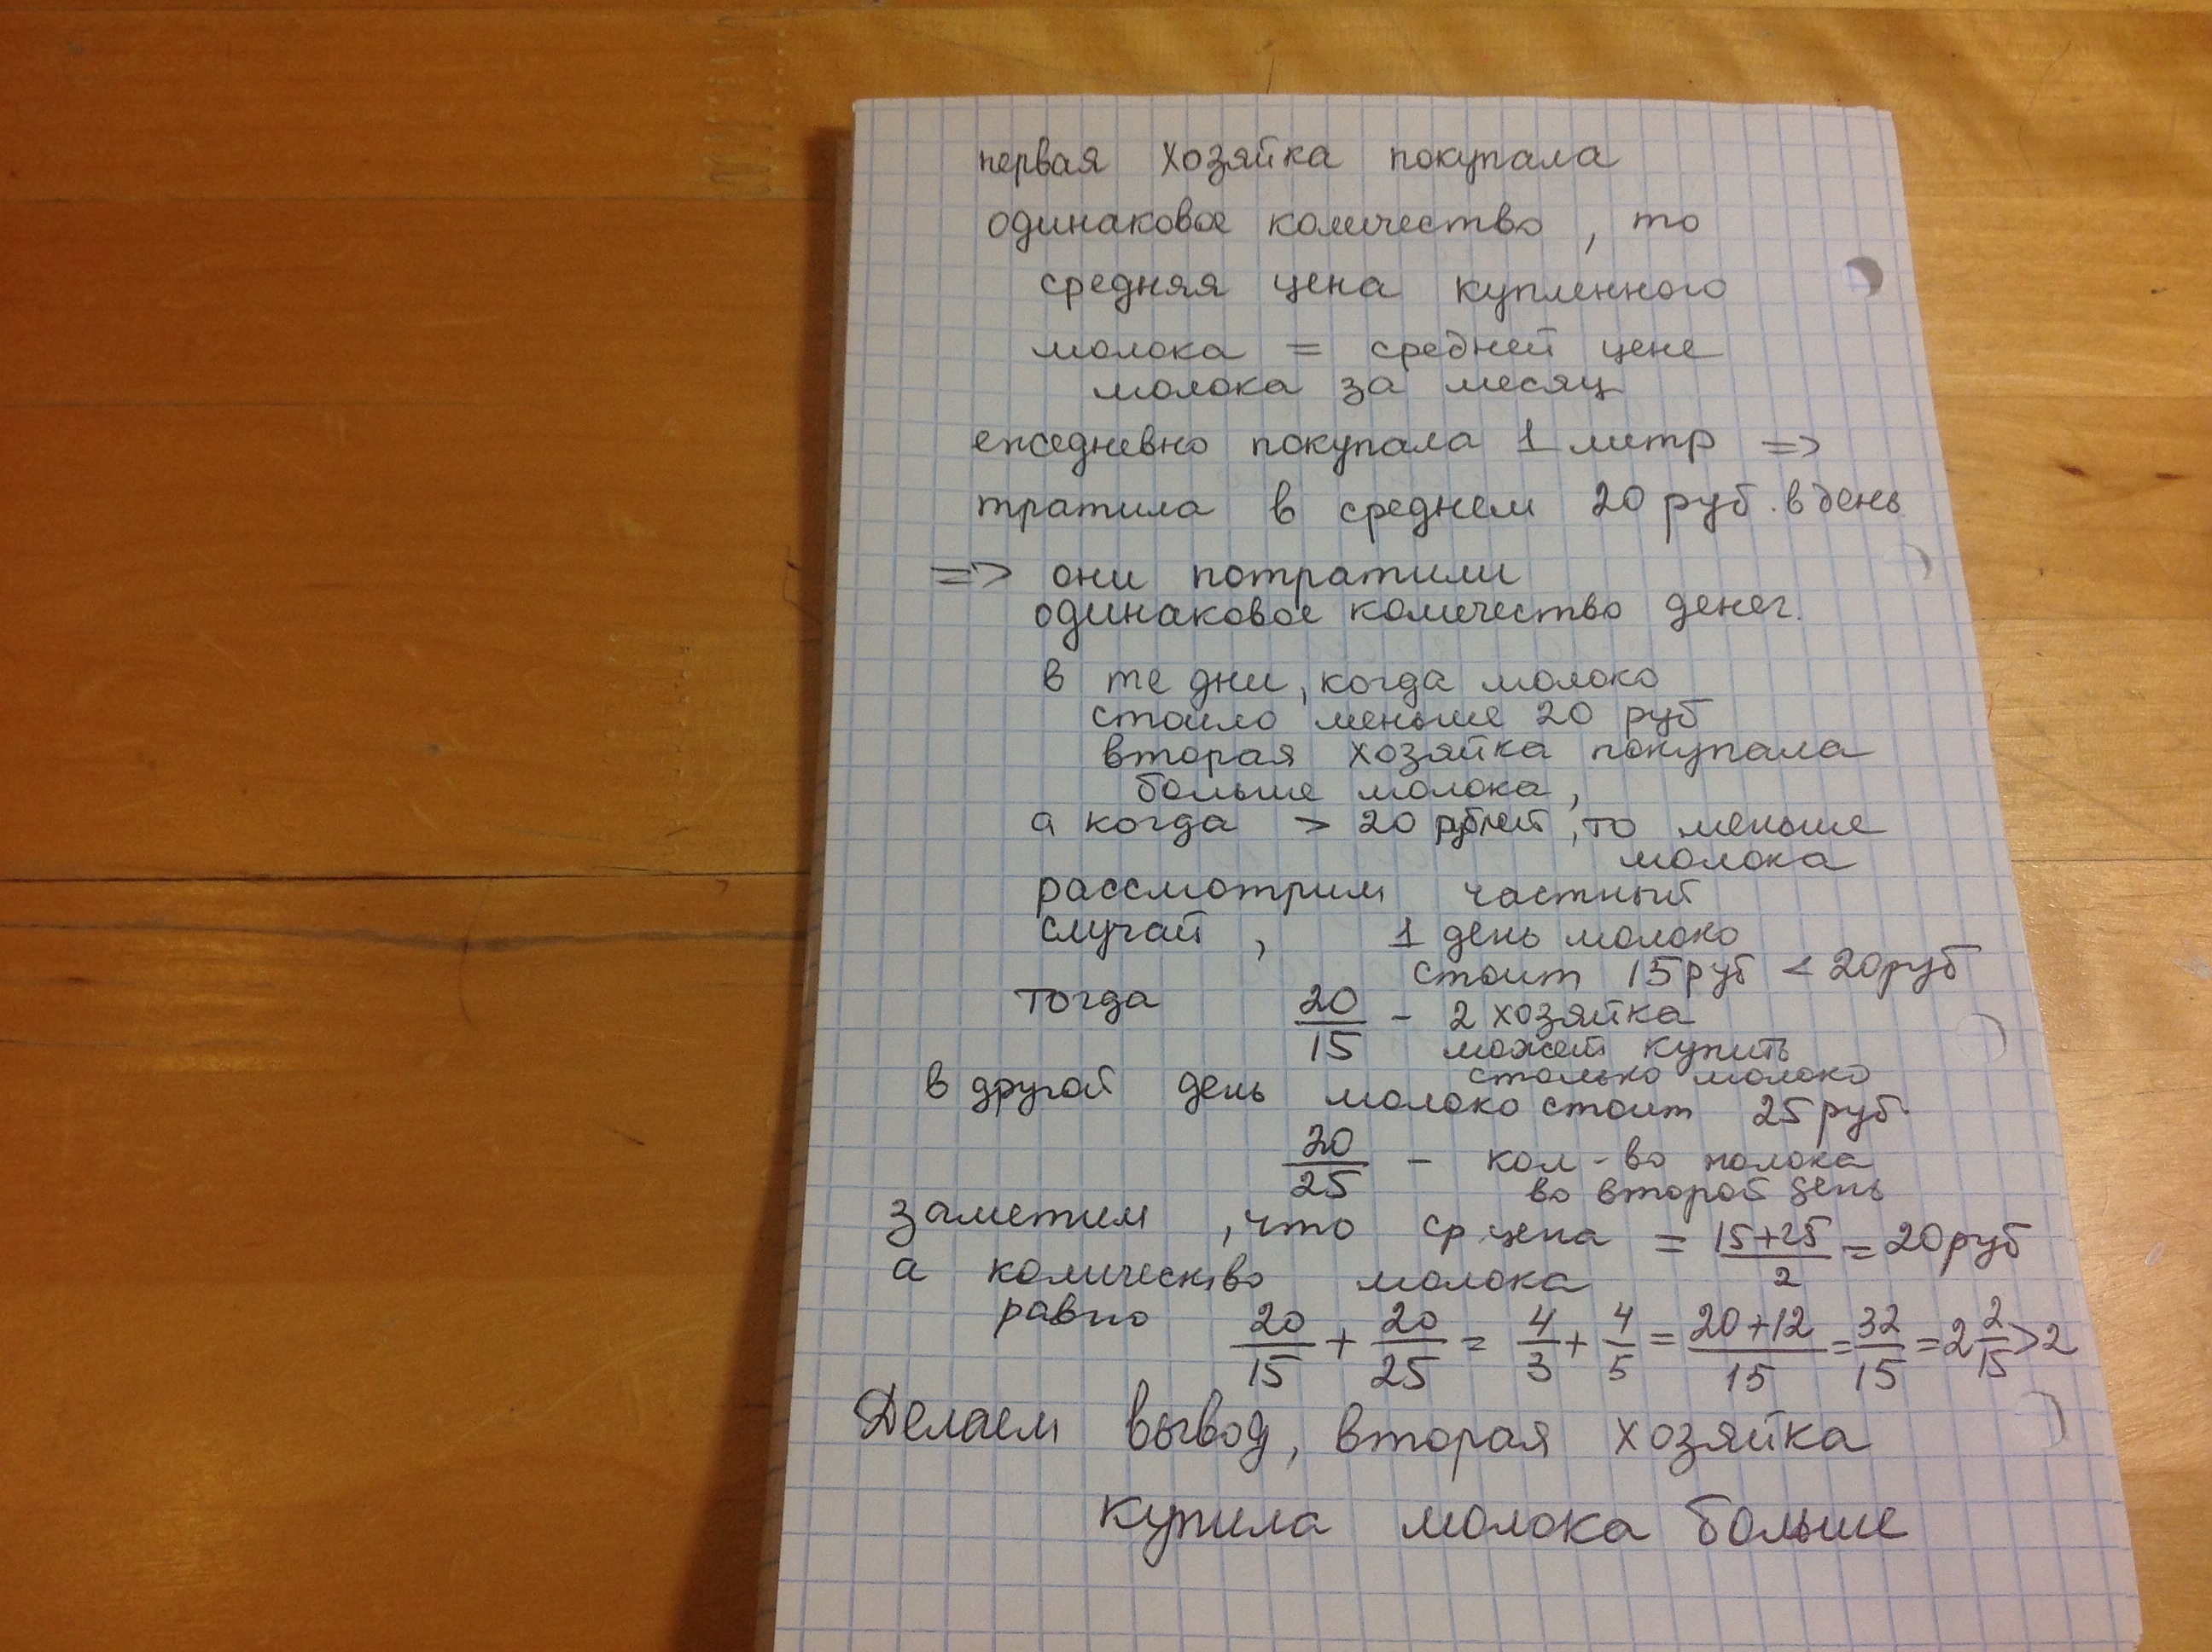 первая хозяйка покупала
одинаковое количество, то
средняя цена купленного
молока = средней цене
молока за месяц
ежедневно покупала 1 литр =>
тратила в среднем 20 руб. в день
=> они потратили
одинаковое количество денег.
в те дни, когда молоко
стоило меньше 20 руб
вторая хозяйка покупала
больше молока,
а когда > 20 рублей, то меньше
молока
рассмотрим частный
случай, 1 день молоко
стоит 15 руб < 20 руб
тогда 20/15 - 2 хозяйка
может купить
столько молоко
в другой день молоко стоит 25 руб.
20/25 - кол-во молока
во второй день
заметим, что ср цена = (15+25)/2 = 20 руб
а количество молока
равно 20/15 + 20/25 = 4/3 + 4/5 = (20+12)/15 = 32/15 = 2 2/15 > 2
Делаем вывод, вторая хозяйка
купила молока больше